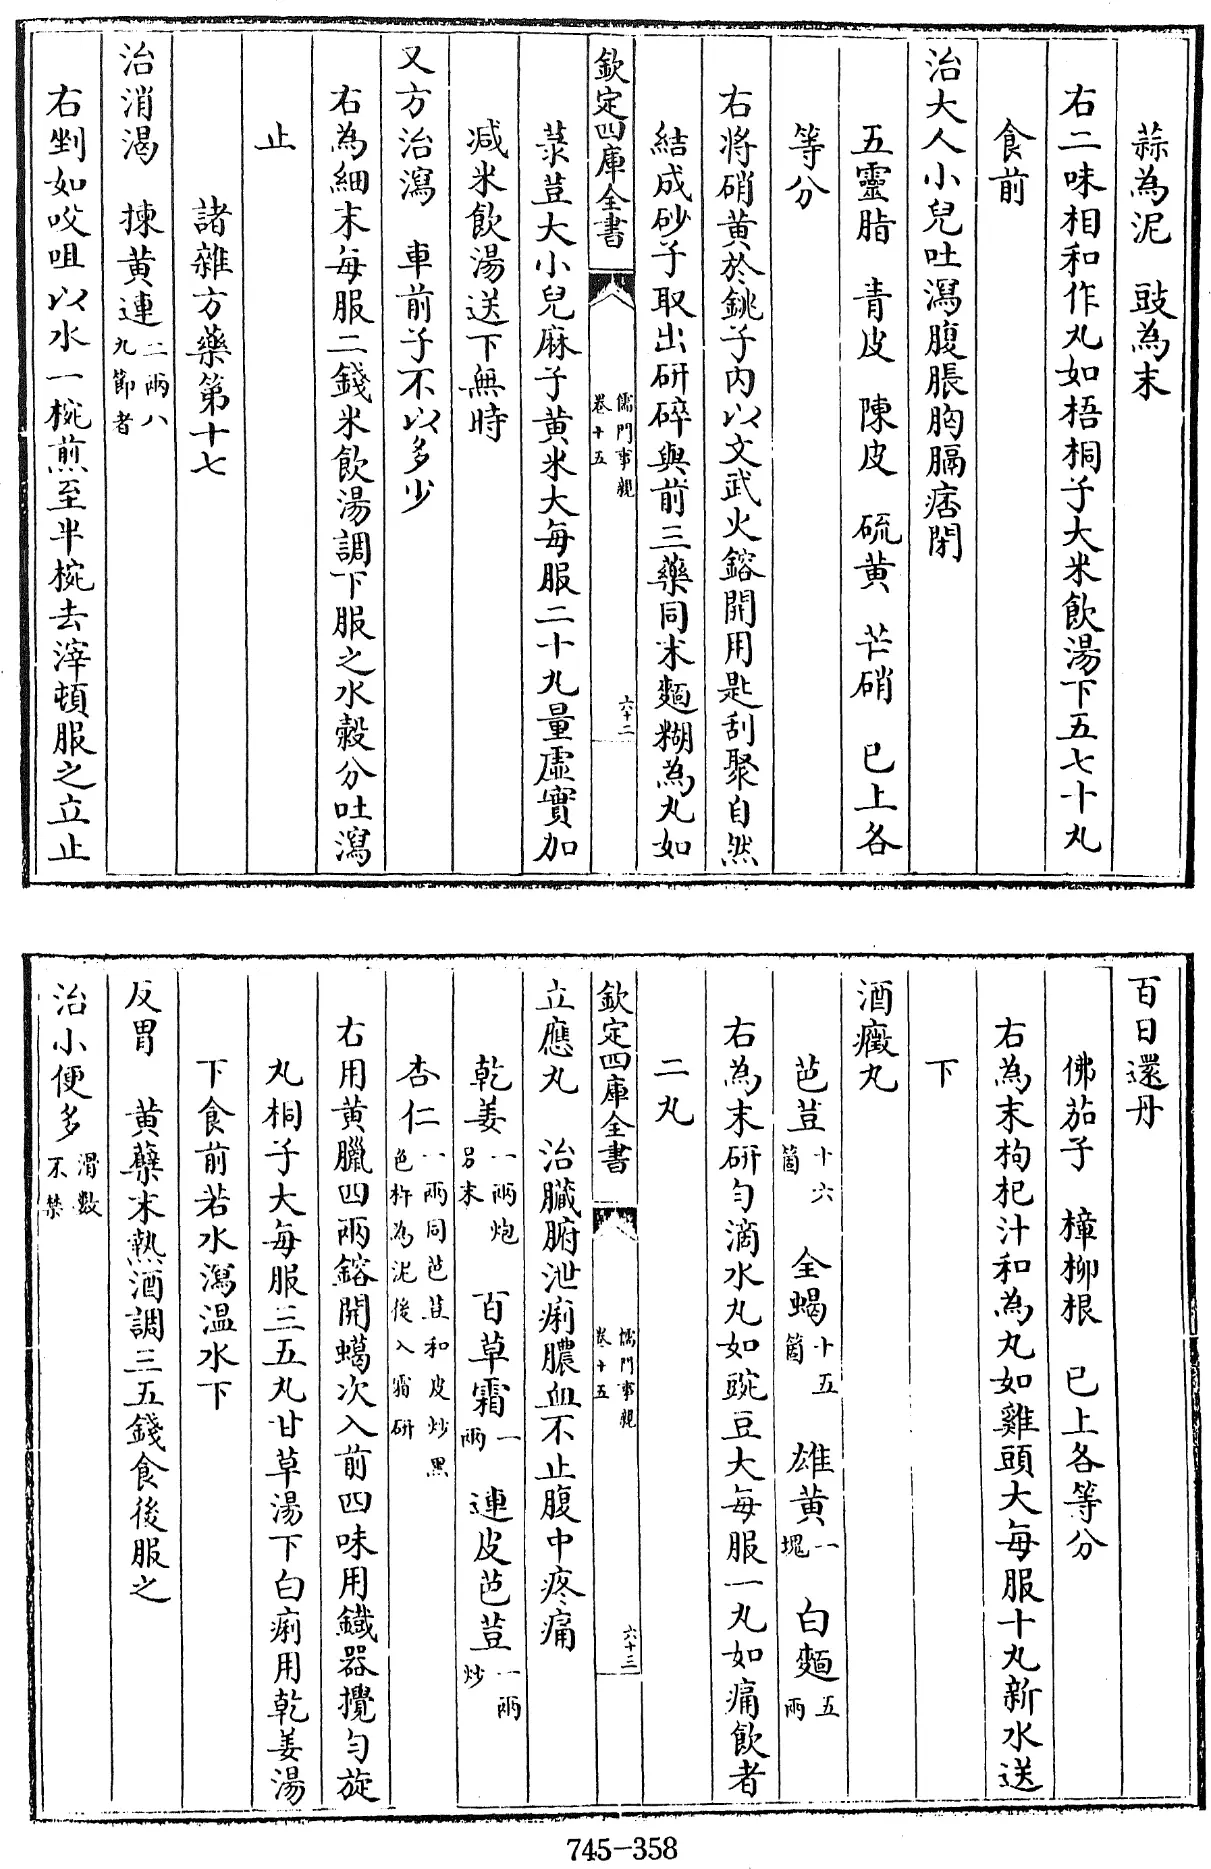 蒜為泥　豉為末
右二味相和作丸如梧桐子大米飲湯下五七十丸
食前
治大人小兒吐瀉腹脹胸膈痞閉
五靈脂　青皮　陳皮　硫黄　芒硝　已上各
等分
右將硝黄於銚子内以文武火鎔開用匙刮聚自然
結成砂子取出研碎與前三藥同末麵糊為丸如
欽定四庫全書
儒門事親
卷十五
六十二
菉荳大小兒麻子黄米大每服二十丸量虛實加
減米飲湯送下無時
又方治瀉　車前子不以多少
右為細末每服二錢米飲湯調下服之水穀分吐瀉
止
諸雜方藥第十七
治消渴　揀黄連二兩八九節者
右剉如咬咀以水一椀煎至半椀去滓頓服之立止
百日還丹
佛茄子　樟柳根　已上各等分
右為末枸杞汁和為丸如雞頭大每服十丸新水送
下
酒癥丸
芭荳十六箇　全蝎十五箇　雄黄一塊　白麵五兩
右為末研勻滴水丸如豌豆大每服一丸如痛飲者
二丸
欽定四庫全書
儒門事親
卷十五
六十三
立應丸　治臟腑泄痢膿血不止腹中疼痛
乾姜一兩炮另末　百草霜一兩　連皮芭荳一兩炒
杏仁一兩同芭荳和皮炒黑色杵為泥後入霜研
右用黄臘四兩鎔開蠟次入前四味用鐵器攪勻旋
丸桐子大每服三五丸甘草湯下白痢用乾姜湯
下食前若水瀉温水下
反胃　黄蘗末熱酒調三五錢食後服之
治小便多滑數不禁
745-358